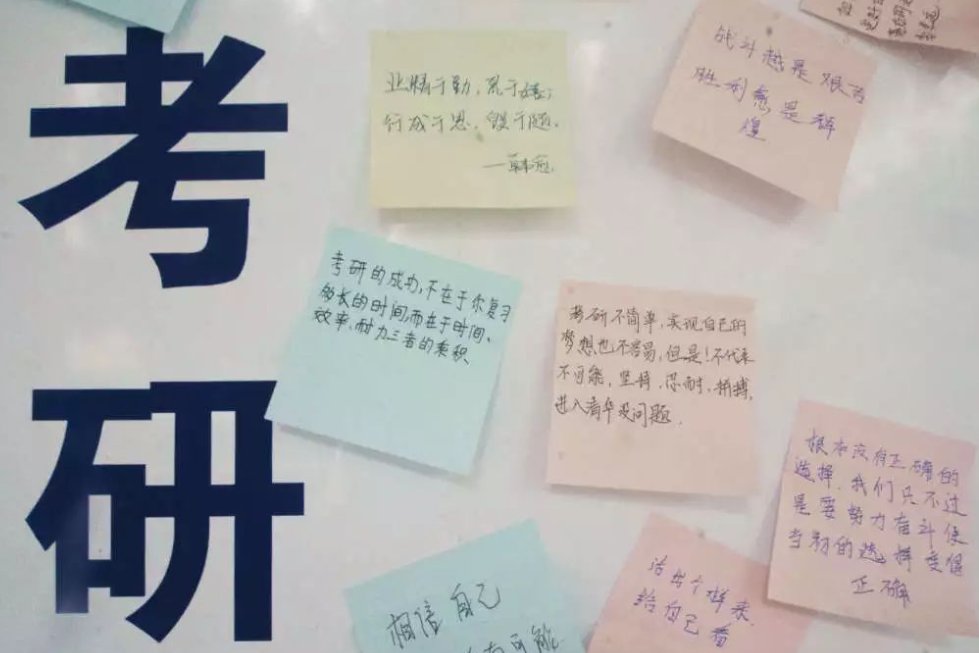 考
研
业精于勤，荒于嬉；
行成于思，毁于随。
—韩愈
战斗越是艰苦
胜利愈是辉
煌
考研的成功,不在于你复习
多长的时间,而在于时间、
效率、耐力三者的乘积
考研不简单,实现自己的
梦想也不容易,但是!不代表
不可能,坚持、忍耐、拼搏,
进入清华没问题.
根本没有正确的
选择,我们只不过
是要努力奋斗使
当初的选择变得
正确
相信自己
可能
活出个样来
给自己看